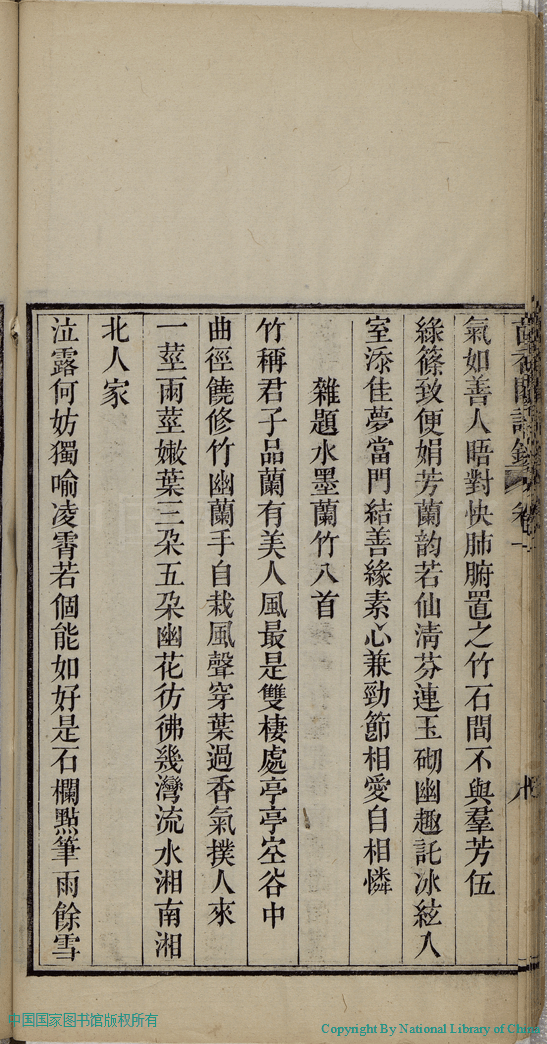 氣如善人晤對快肺腑置之竹石間不與羣芳伍
綠篠致便娟芳蘭韵若仙淸芬連玉砌幽趣託冰絃入
室添佳夢當門結善緣素心兼勁節相愛自相憐
雜題水墨蘭竹八首
竹稱君子品蘭有美人風最是雙棲處亭亭空谷中
曲徑饒修竹幽蘭手自栽風聲穿葉過香氣撲人來
一莖雨莖嫩葉三朶五朶幽花彷彿幾灣流水湘南湘
北人家
泣露何妨獨喻凌霄若個能如好是石欄點筆雨餘雪
中国国家图书馆版权所有
Copyright By National Library of China